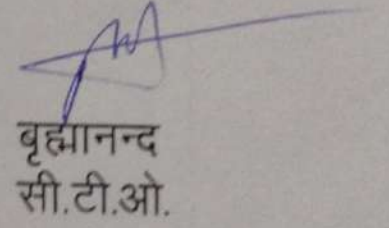 बृह्मानन्द
सी.टी.ओ.